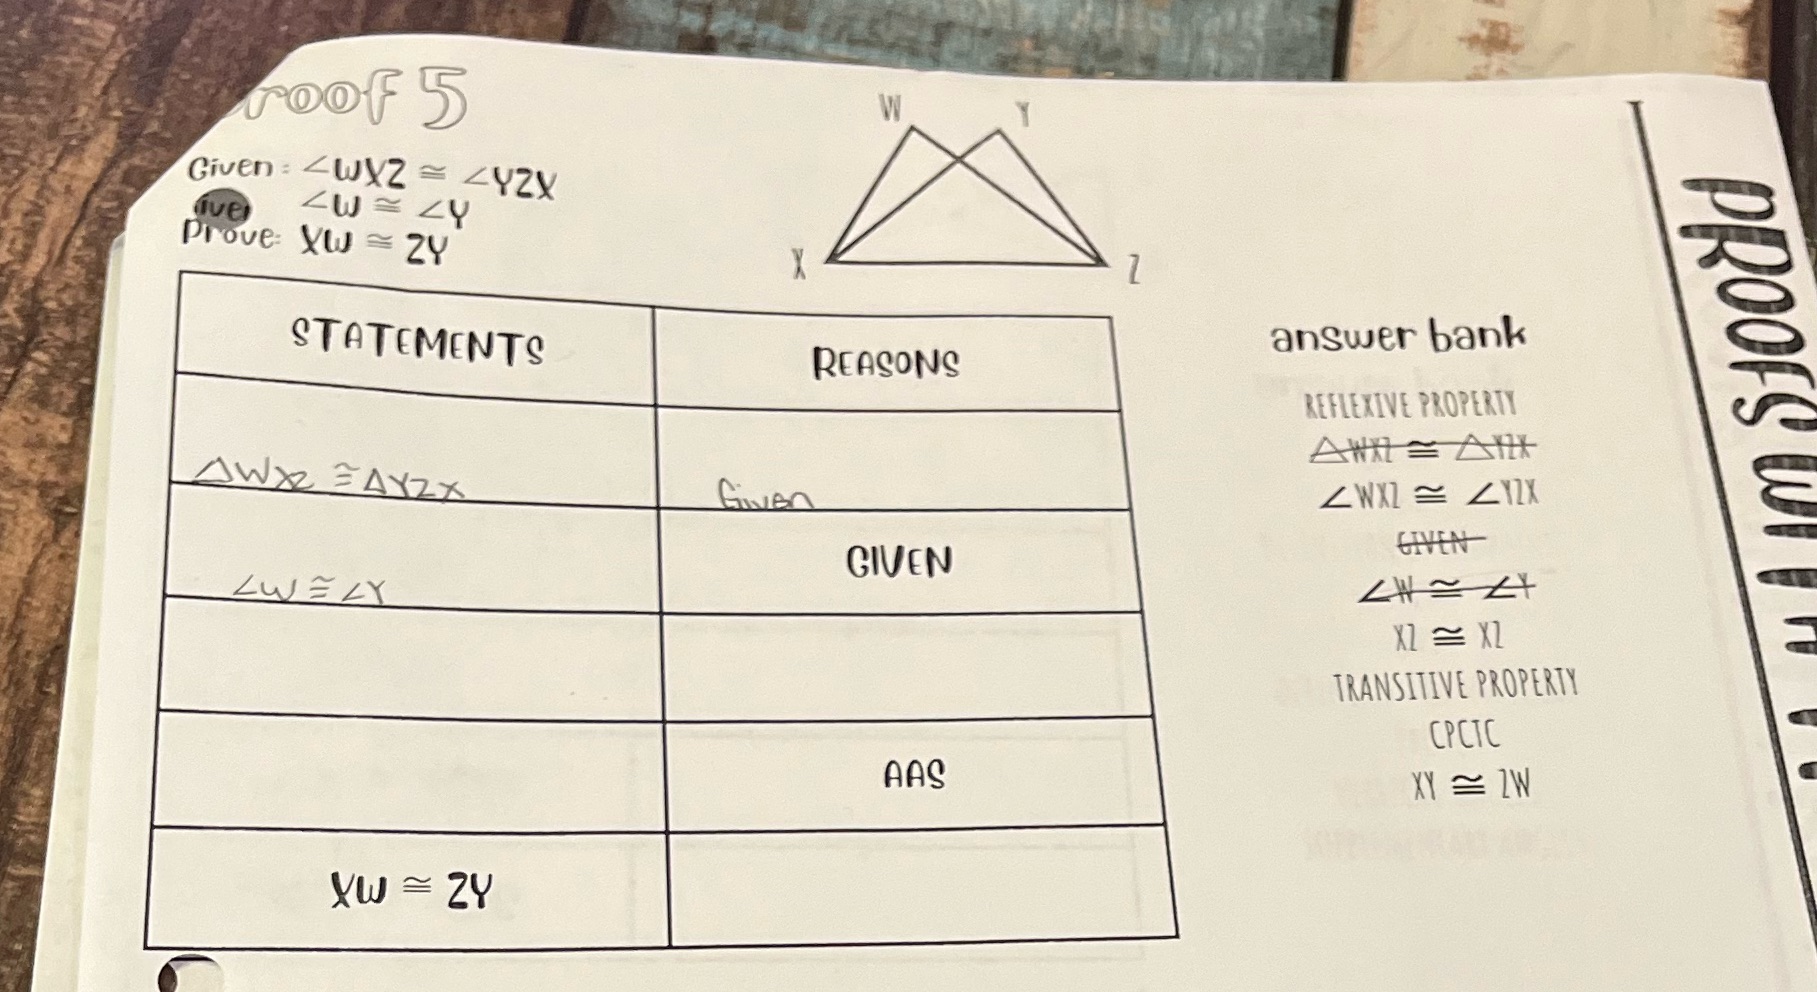 roof 5
Given: ∠WXZ ≅ ∠YZX
∠W ≅ ∠Y
Prove: XW ≅ ZY
W Y
X Z
STATEMENTS REASONS
△WXZ ≅ △YZX Given
∠W ≅ ∠Y GIVEN
AAS
XW ≅ ZY
answer bank
REFLEXIVE PROPERTY
△WXZ ≅ △YZX
∠WXZ ≅ ∠YZX
GIVEN
∠W ≅ ∠Y
XZ ≅ XZ
TRANSITIVE PROPERTY
CPCTC
XY ≅ ZW
PROOFS